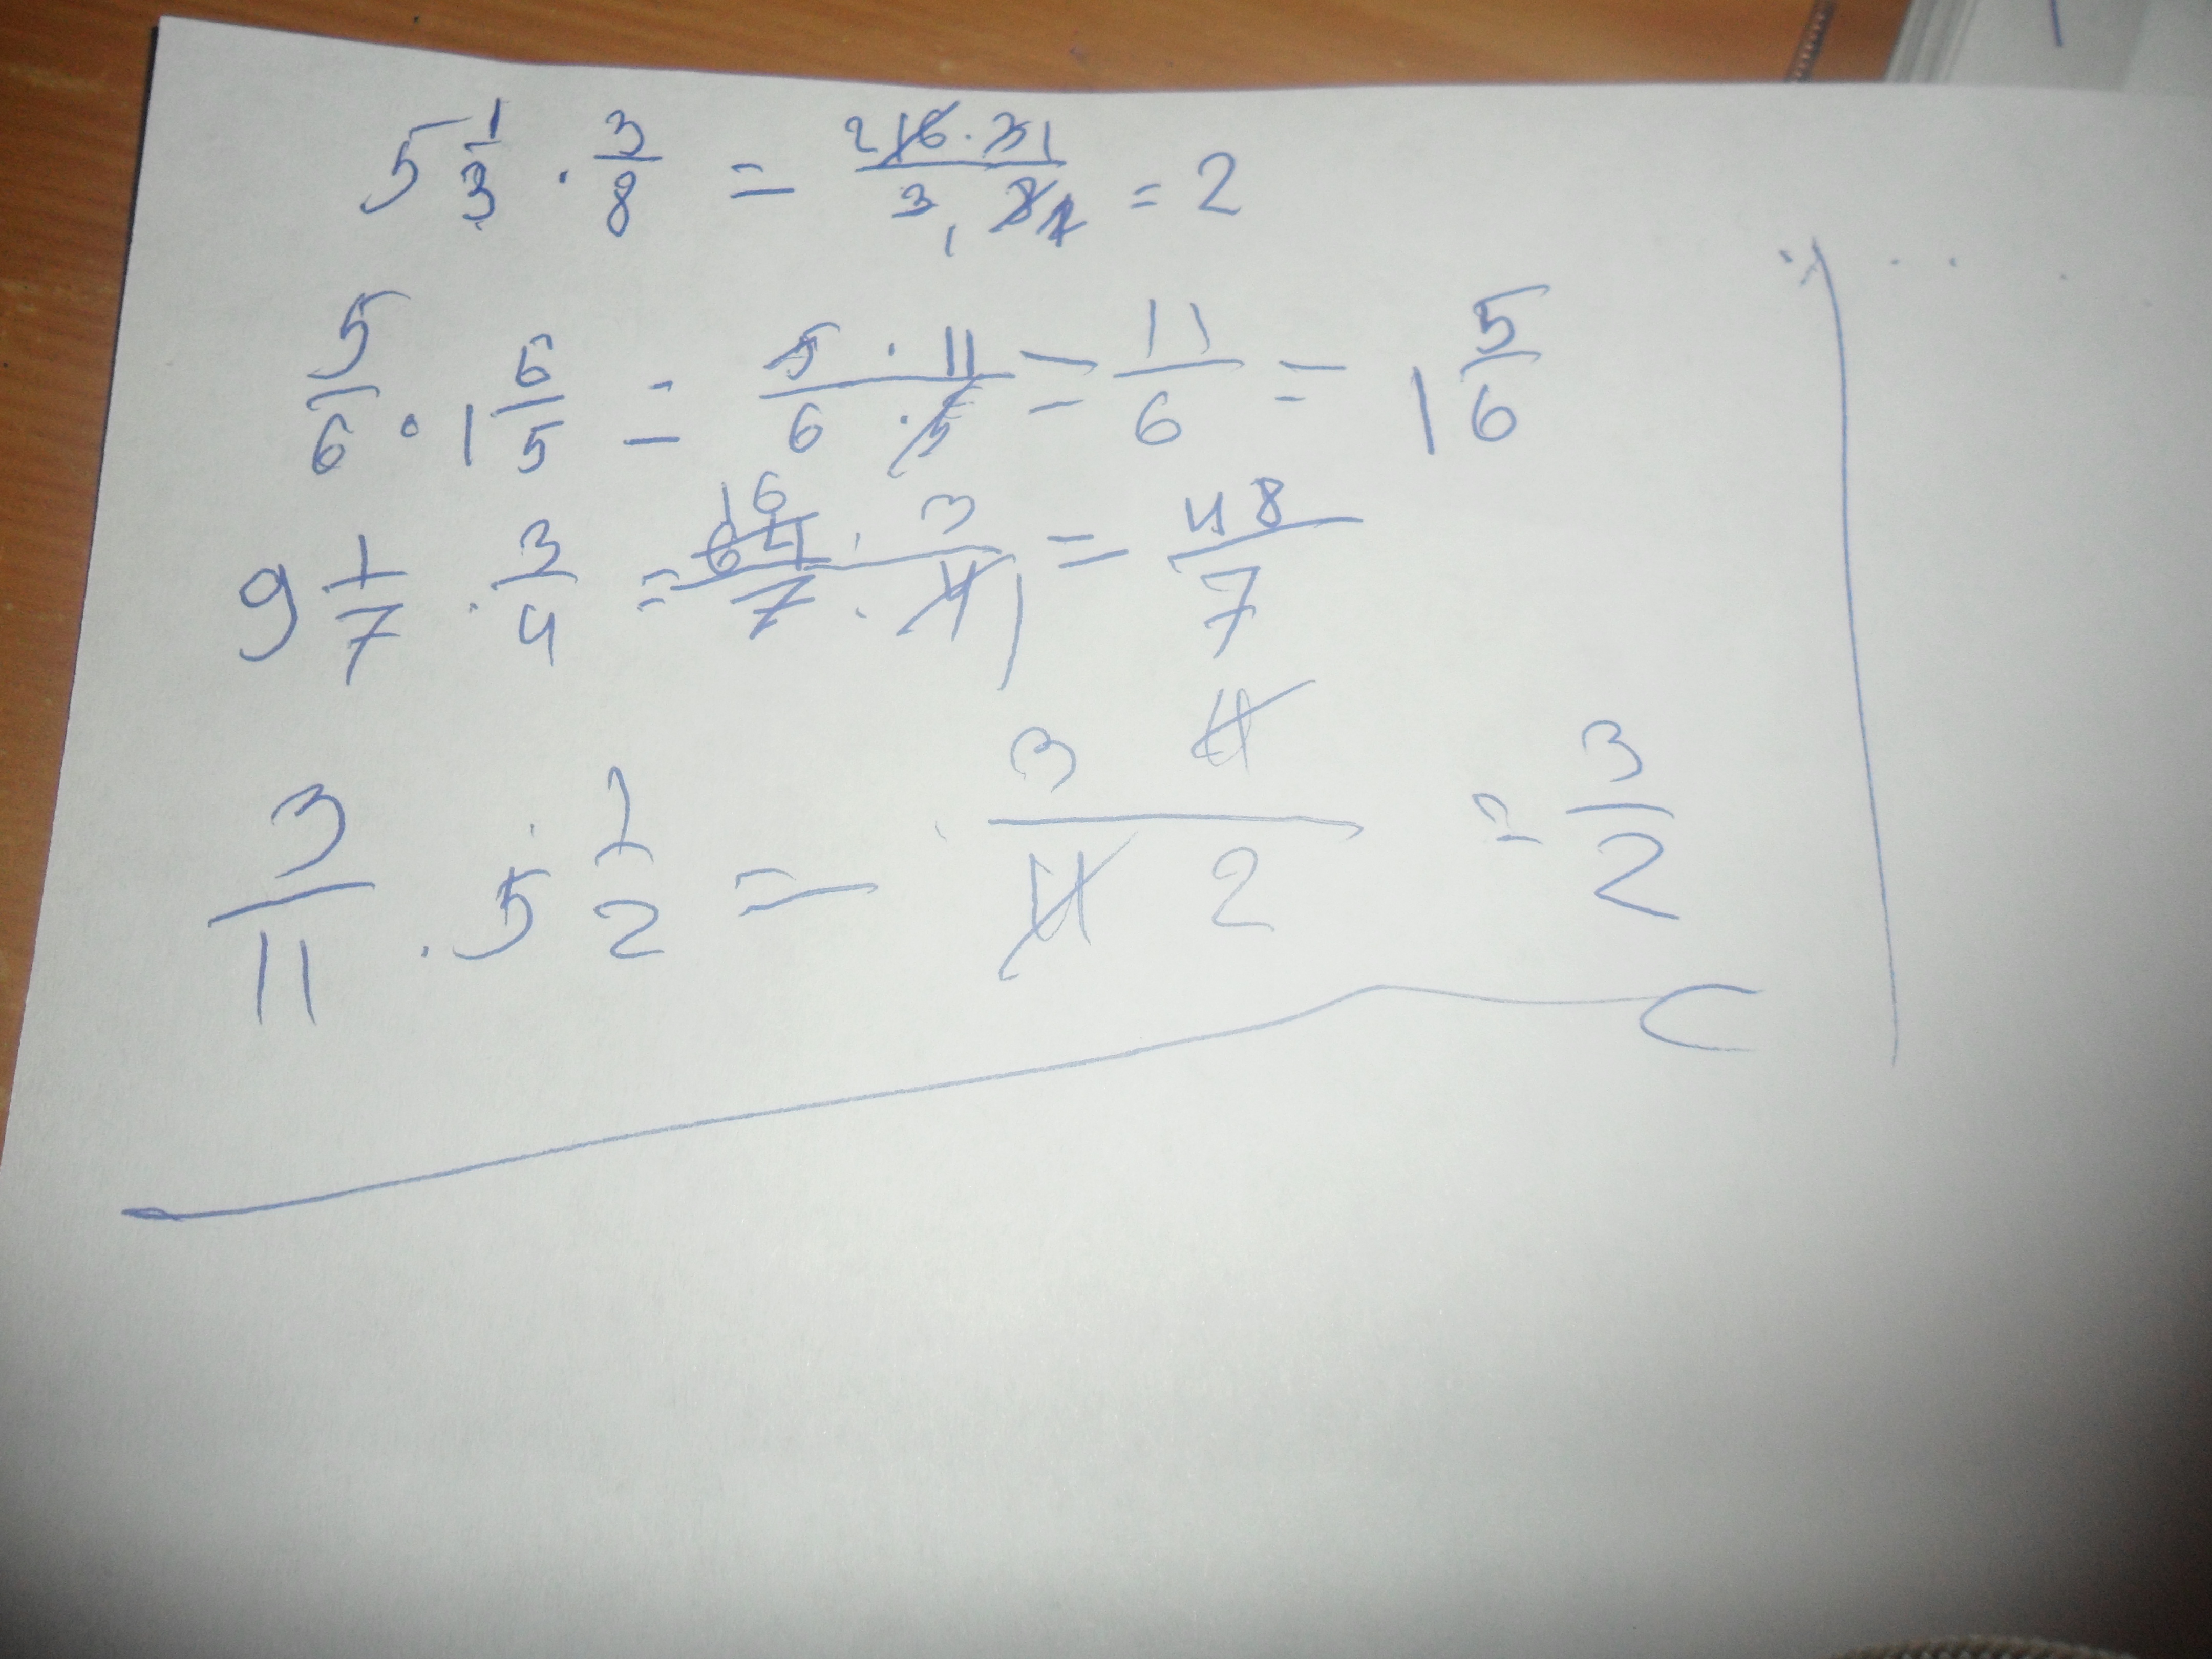 5 1/3 · 3/8 = 2 16 · 3 1 / 3 1 · 8 1 = 2
5/6 · 1 6/5 = 5 · 11 / 6 · 5 = 11/6 = 1 5/6
9 1/7 · 3/4 = 16 64 · 3 / 7 · 4 1 = 48/7
3/11 · 5 1/2 = 3 11 / 11 2 = 3/2